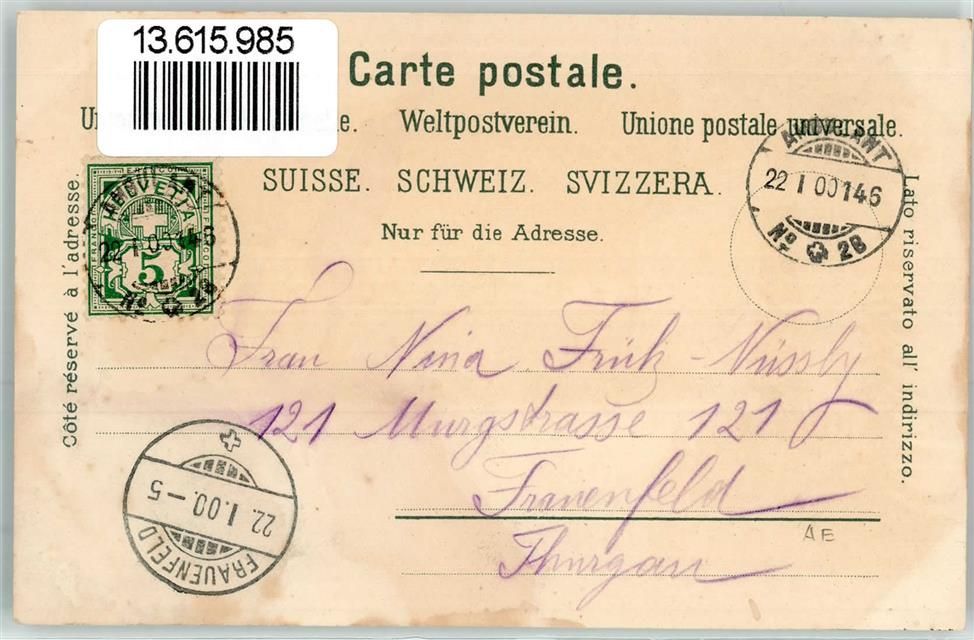 13.615.985
Carte postale.
Weltpostverein. Unione postale universale.
SUISSE. SCHWEIZ. SVIZZERA.
Nur für die Adresse.
Côté réservé à l'adresse.
Lato riservato all' indirizzo.
HELVETIA
5
22 I 00 146
No 28
AMBULANT
22 I 00 146
No 28
Frau Nina - Nüssly
121 Murgstrasse 121
Frauenfeld
Thurgau
AE
22. I. 00. - 5
FRAUENFELD